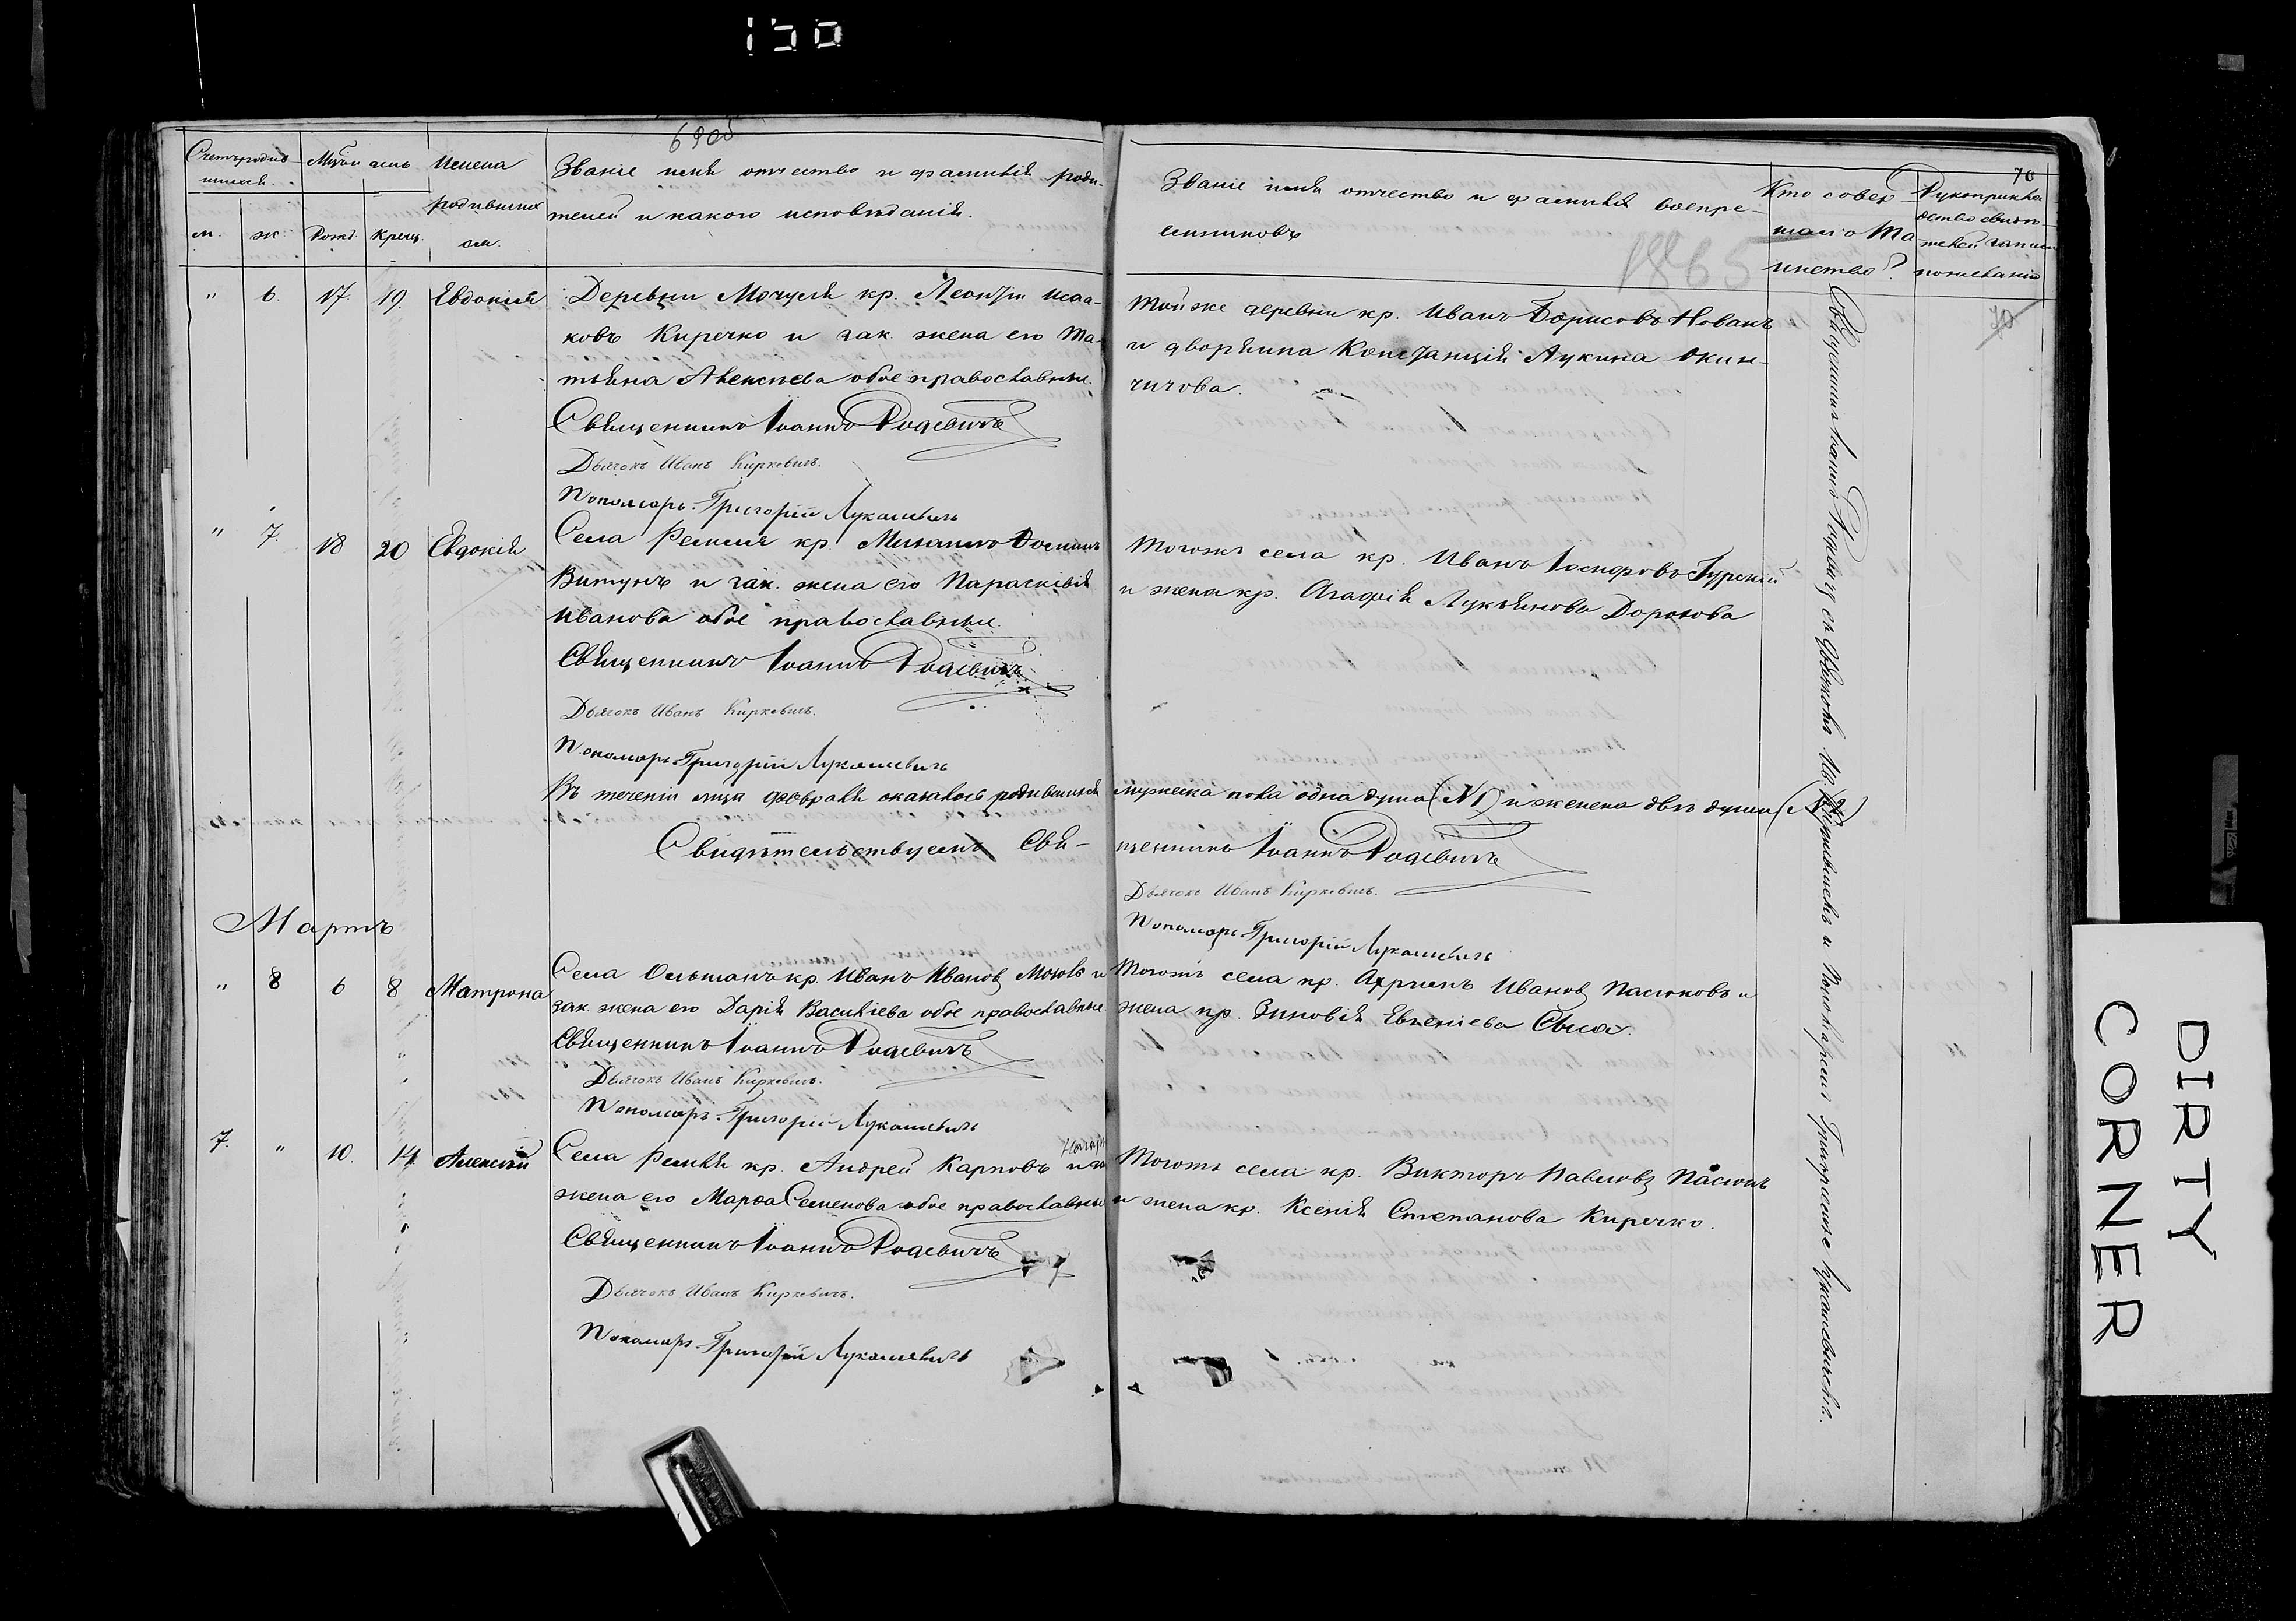 150
69об
Счетъ родив-
шихся.
Мѣсяцъ день
Имена
родившихся.
Званіе имя отчество и фамилія роди-
телей и какого исповѣданія.
м. ж. Рожд. Крещ.
Званіе имя отчество и фамилія воспре-
емниковъ
Кто совер-
шалъ Та
инство?
Рукоприкла
дство свидѣ-
телей записи
по желанію
70
1865
" 6. 17. 19. Евдокія
Деревни Мочуля кр. Леонтій Исаа-
ковъ Киречко и зак. жена его Та-
тьяна Алексѣева обое православные.
Священникъ Іоаннъ Родевичъ
Дьячокъ Иванъ Киркевичъ.
Пономарь Григорій Лукашевичъ
Тойже деревни кр. Иванъ Борисовъ Новакъ
и дворянина Констанція Лукина Окин-
чичова.
70
" 7. 18 20 Евдокія
Села Ремля кр. Михаилъ Фоминъ
Витунъ и зак. жена его Параскевія
Иванова обое православные.
Священникъ Іоаннъ Родевичъ
Дьячокъ Иванъ Киркевичъ.
Пономарь Григорій Лукашевичъ
Тогожъ села кр. Иванъ Іосифовъ Гурскій
и жена кр. Агафія Лукьянова Дорохова
Въ теченіи мѣца февраля оказалось родившихся мужеска пола одна душа (№1) и женска двѣ души (№2)
Свидѣтельствуемъ Свя-
щенникъ Іоаннъ Родевичъ
Дьячокъ Иванъ Киркевичъ.
Пономарь Григорій Лукашевичъ
Мартъ
" 8 6 8 Матрона
Села Ольманъ кр. Иванъ Ивановъ и
зак. жена его Дарія Василіева обое православные
Священникъ Іоаннъ Родевичъ
Дьячокъ Иванъ Киркевичъ.
Пономарь Григорій Лукашевичъ
Тогожъ села кр. Иванов Пасюковъ и
жена кр. Зиновія Евгеніева
7. " 10. 14 Алексѣй
Села Ремля кр. Андрей Карповъ
жена его Марфа Семенова обое православные
Священникъ Іоаннъ Родевичъ
Дьячокъ Иванъ Киркевичъ.
Пономарь Григорій Лукашевичъ
Тогожъ села кр. Викторъ Павловъ Пасюкъ
и жена кр. Ксенія Степанова Киречко.
Священникъ Іоаннъ Родевичъ съ Дьячкомъ и Пономаремъ Григоріемъ Лукашевичемъ.
DIRTY
CORNER